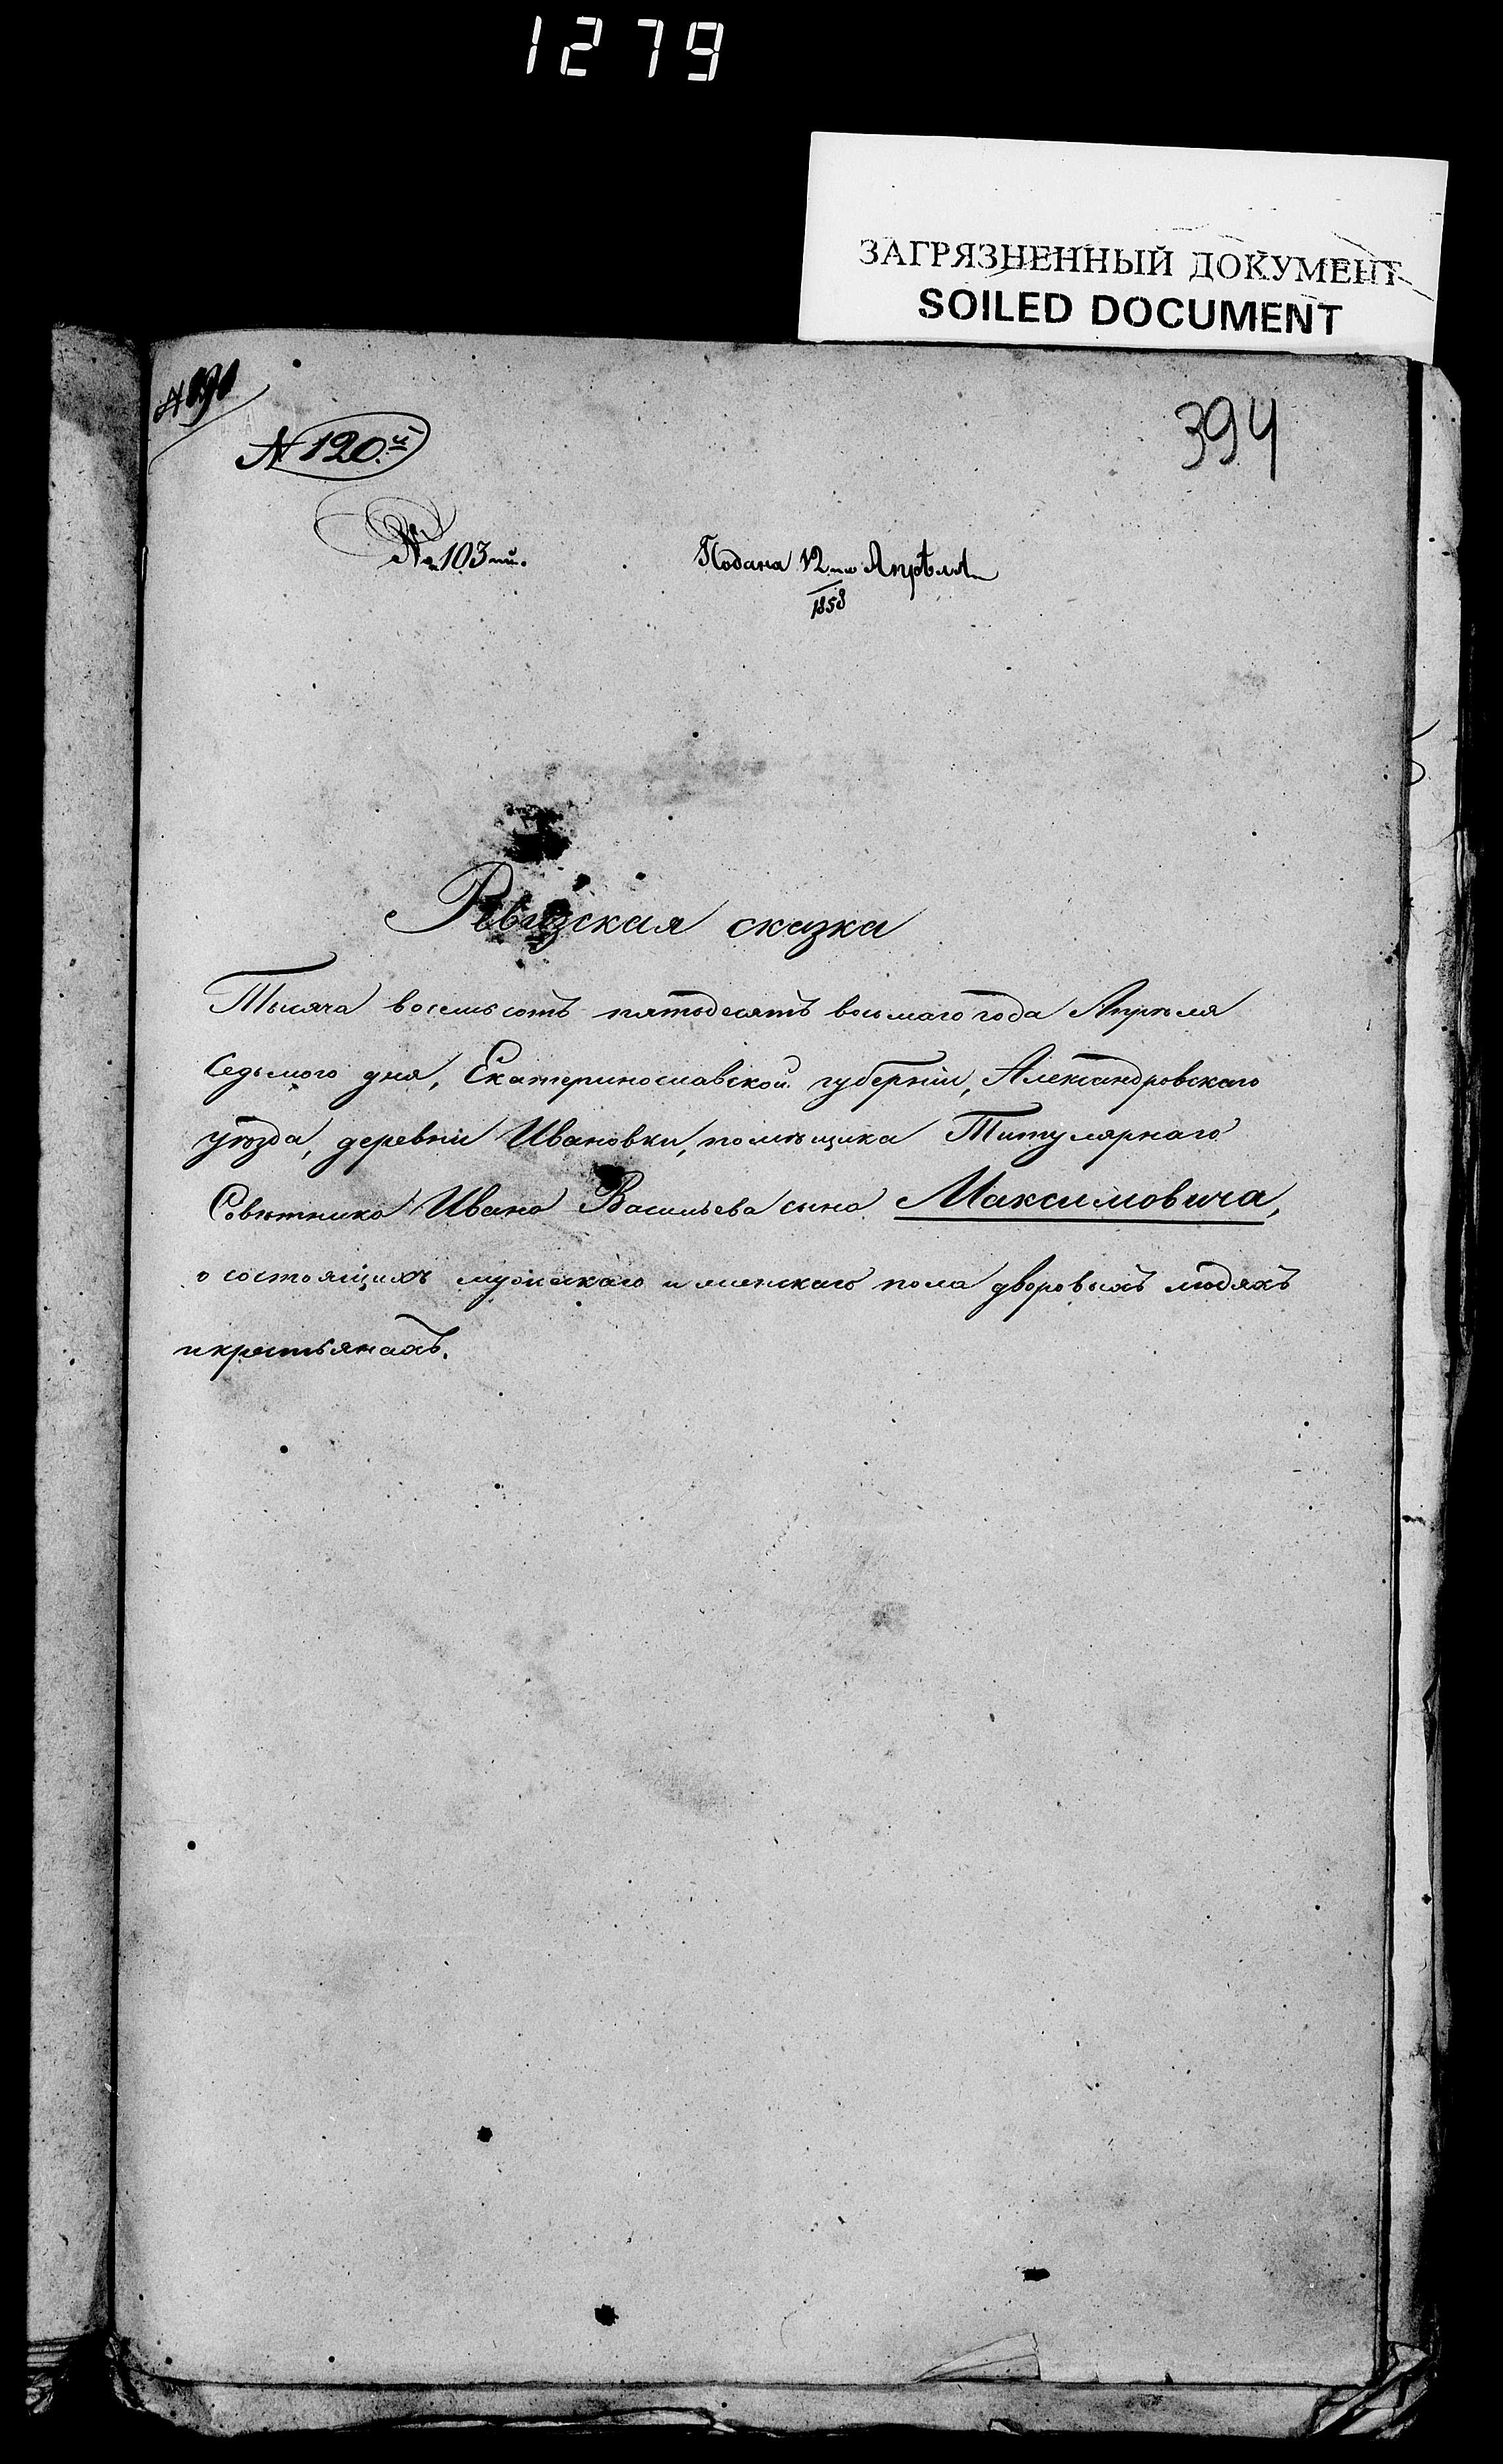 1279
ЗАГРЯЗНЕННЫЙ ДОКУМЕНТ
SOILED DOCUMENT
394
N 120.й
№ 103ий.
Подана 12го Апрѣля
1858
Ревизская сказка
Тысяча восемьсотъ пятьдесятъ восьмаго года Апрѣля
седьмого дня, Екатеринославской губерніи, Александровскаго
уѣзда, деревни Ивановки, помѣщика Титулярнаго
Совѣтника Ивана Васильева сына Максимовича,
о состоящихъ мужскаго и женскаго пола дворовыхъ людяхъ
и крестьянахъ.